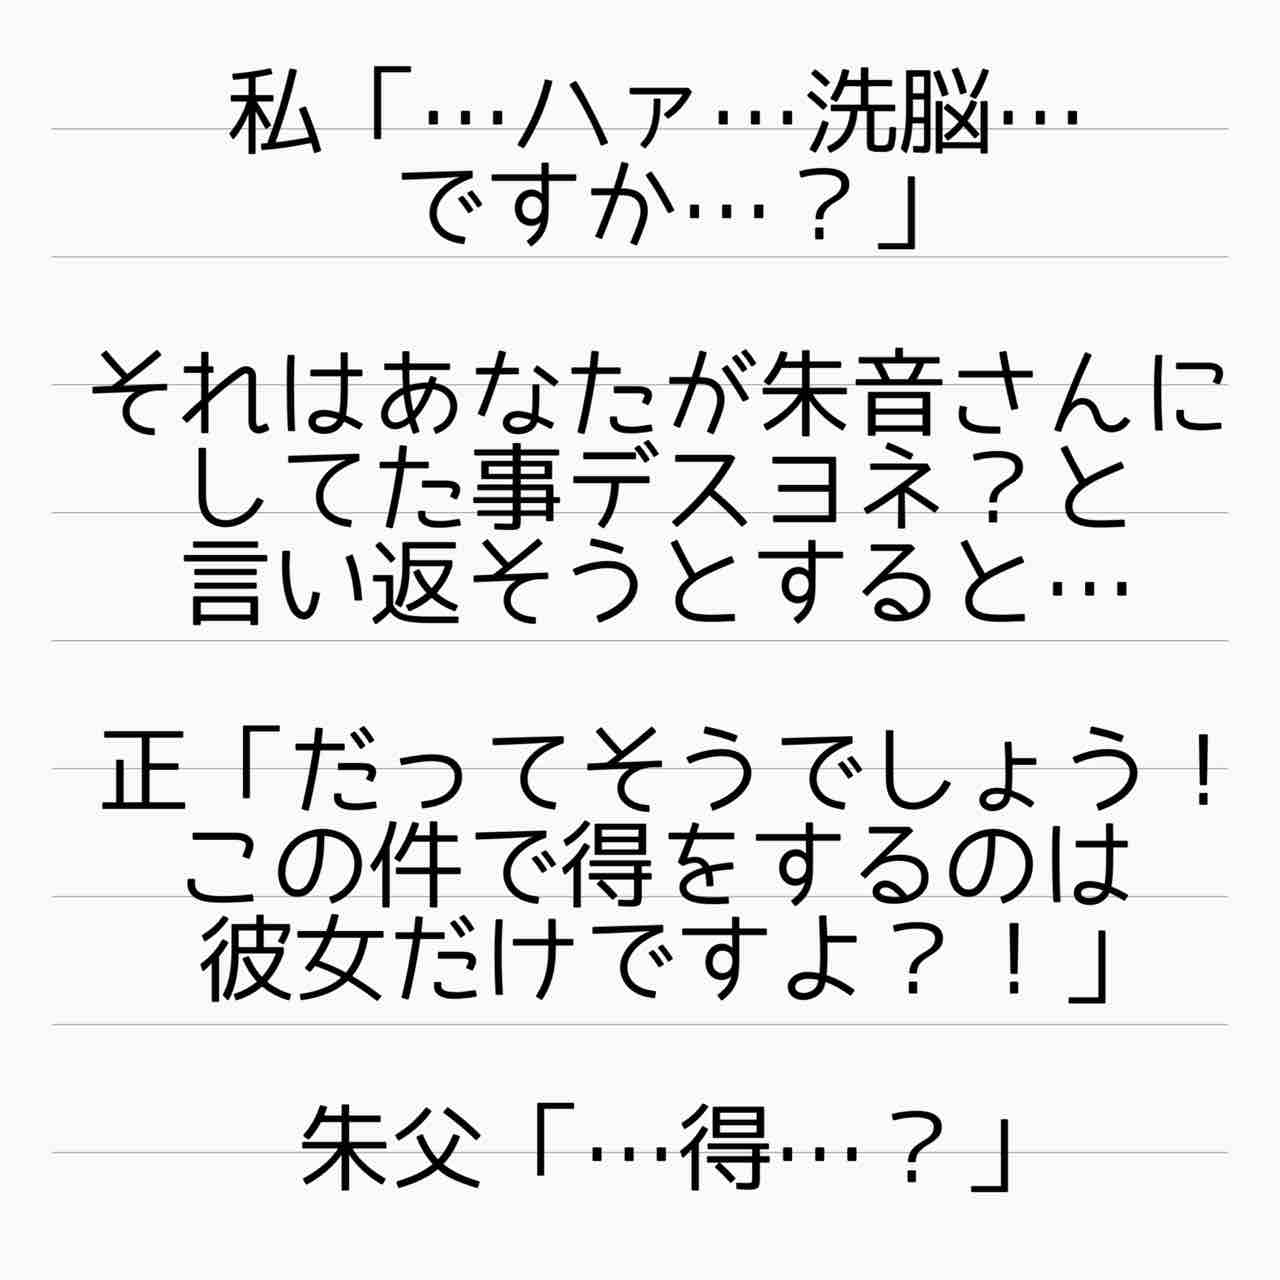 私「…ハァ…洗脳…
ですか…？」
それはあなたが朱音さんに
してた事デスヨネ？と
言い返そうとすると…
正「だってそうでしょう！
この件で得をするのは
彼女だけですよ？！」
朱父「…得…？」